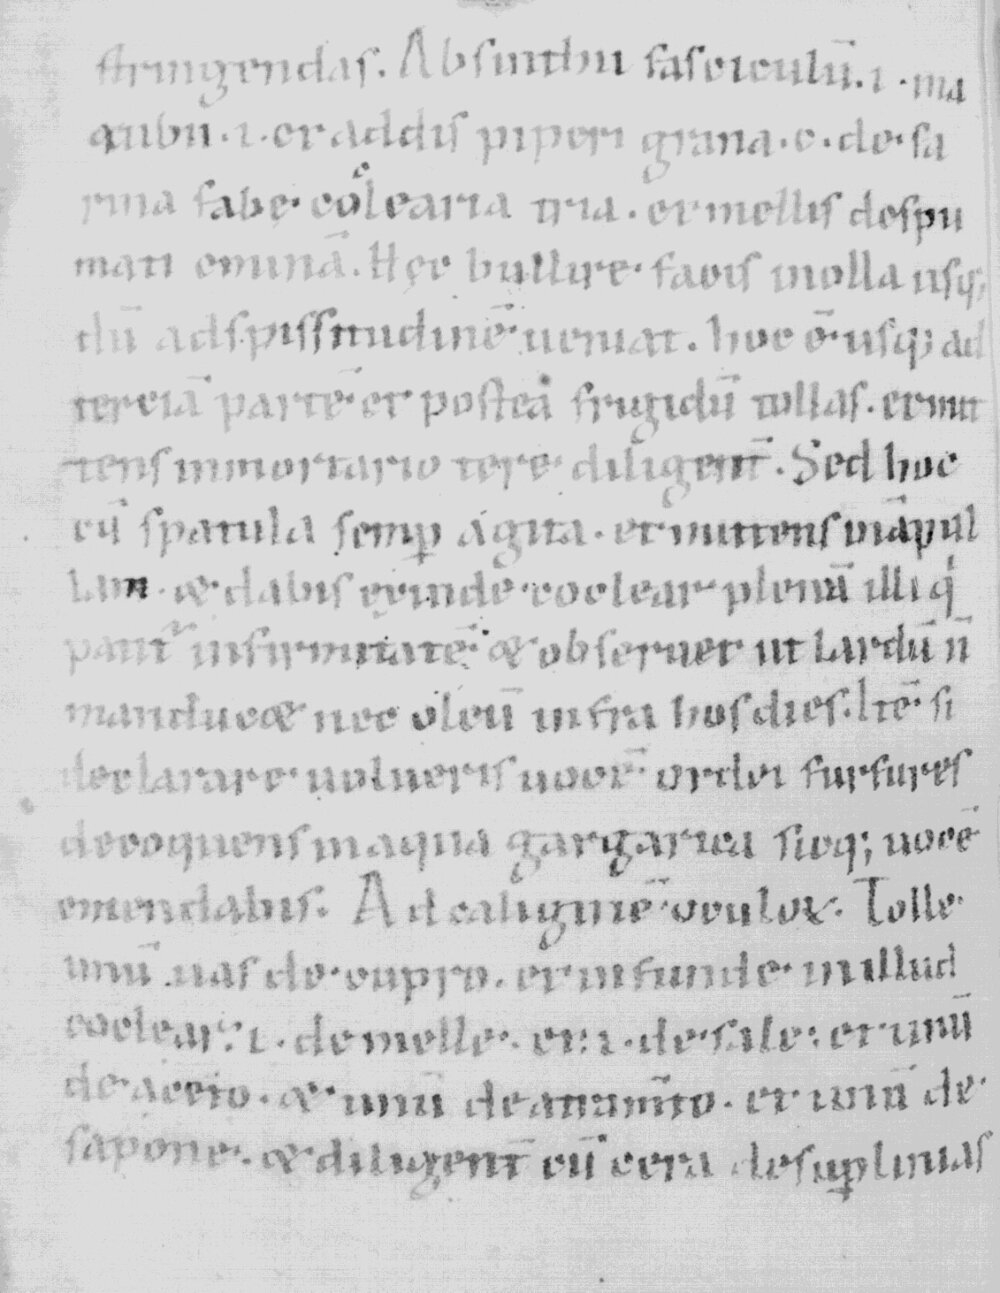 stringendas. Absinthii fasciculū. i. ma
nubii. i. et addis piperi grana. c. de. fa
rina fabe. coclearia tria. et mellis despu
mati eminā. Hęc bullire. facis in olla usq;
dū ad spissitudinē. ueniat. hoc ē. usq; ad
terciā partē. et posteā frigidū tollas. et mit
tens in mortario tere. diligent̄. Sed hoc
cū spatula semꝑ agita. et mittens in āpul
lam. & dabis exinde. coclear plenā illi q
patit infirmitatē. & obseruet ut lardū n̄
manduc& nec oleū infra hos dies. Itē. si
declarare. uolueris uocē. ordei furfures
decoquens in aqua gargariza sicq; uocē
emendabis. Ad caliginē. oculoꝝ. Tolle.
unū uas de. cupro. et infunde. in illud
coclear. i. de melle. et. i. de. sale. et unū
de. aceto. & unū de atramto. et unū de.
sapone. & diligent̄ cū cera desuꝑ linias